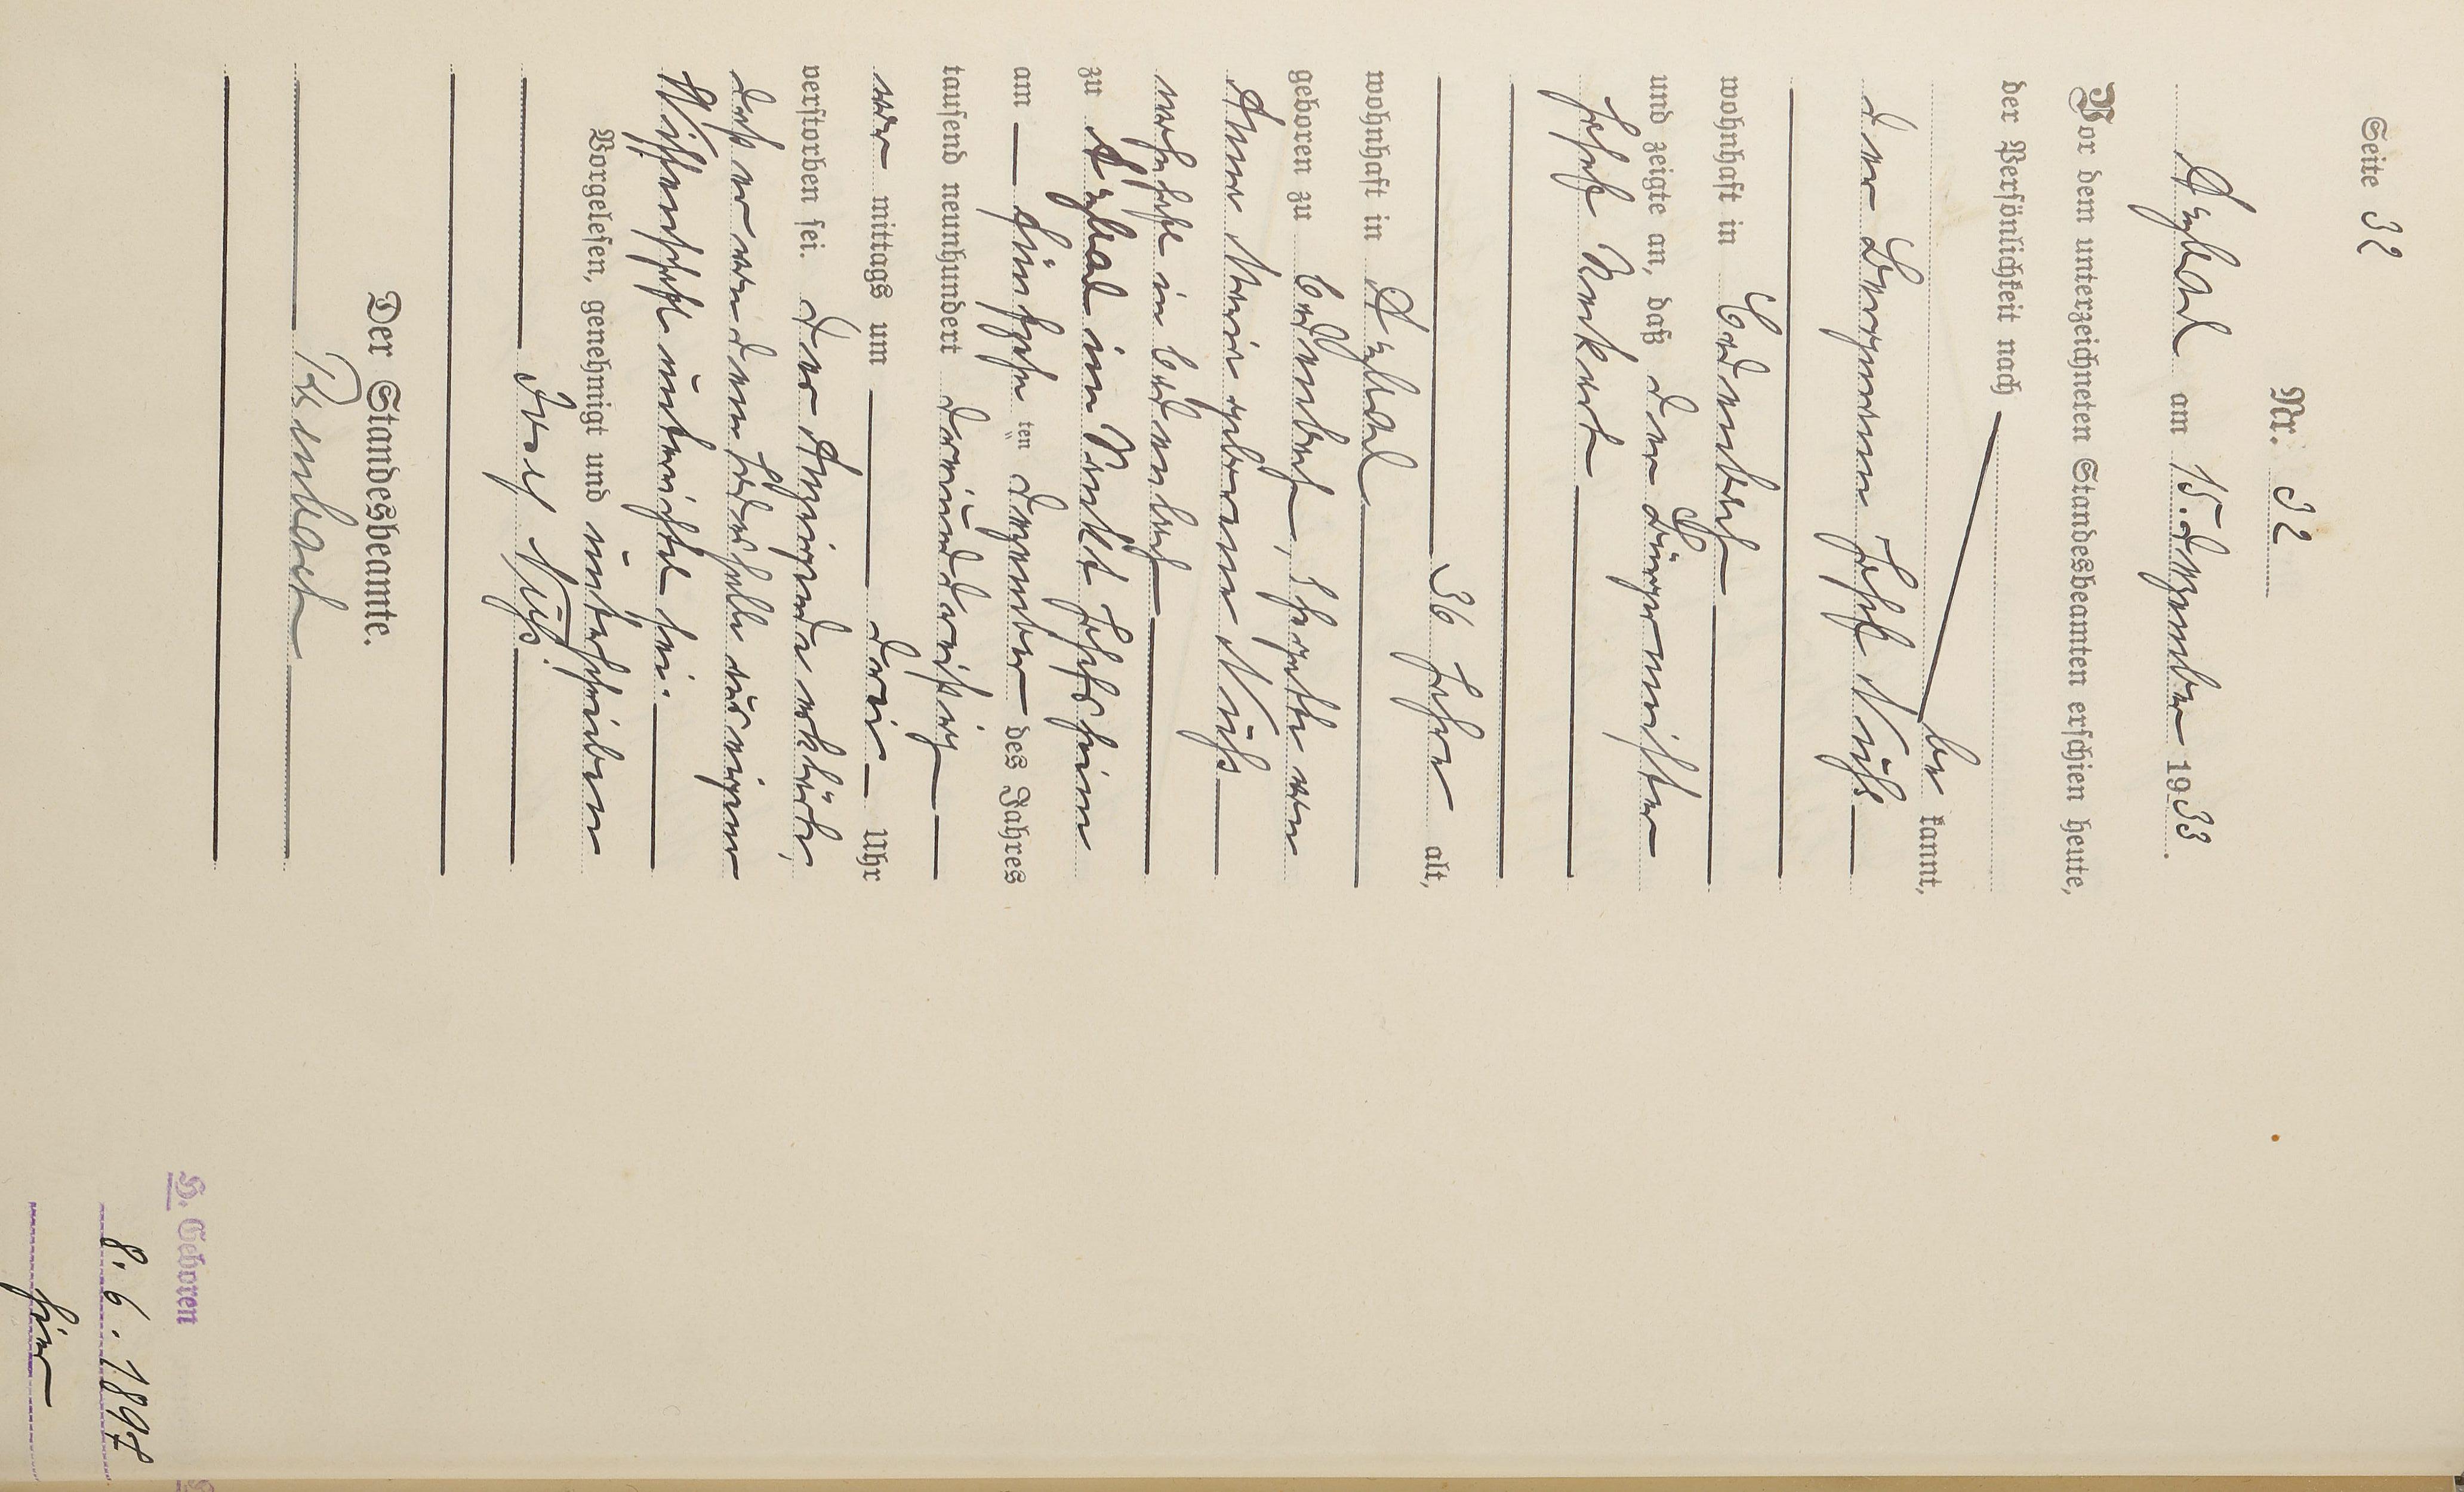 Seite 32
Nr. 32
Aszbach am 15. Dezember 1933.
Vor dem unterzeichneten Standesbeamten erschien heute,
der Persönlichkeit nach
be kannt,
der Bergmann Josef Nüß
wohnhaft in Cadenbach
und zeigte an, daß der Bürgermeister
Josef
36 Jahre alt,
wohnhaft in
geboren zu Cadenbach, Ehegatte von
Anna Maria geborene Nüß
wohnhaft in Cadenbach
zu
am fünfzehn ten Dezember des Jahres
tausend neunhundert dreiunddreißig
vor mittags um drei Uhr
verstorben sei. Der Anzeigende erklärte,
daß er von dem Todesfalle aus eigener
Wissenschaft unterrichtet sei.
Vorgelesen, genehmigt und unterschrieben
Josef Nüß.
Der Standesbeamte.
H. Geboren
8. 6. 1897
hier